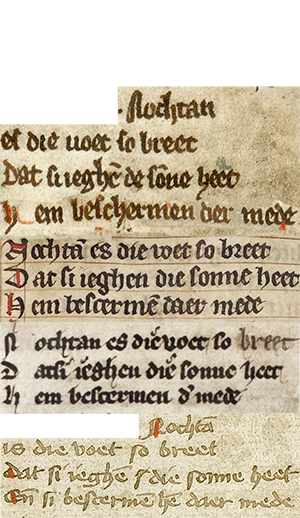 Nochtan
es die voet so breet
Dat si ieghē de sōne heet
Hem beschermen der mede
Nochtā es die voet so breet
Dat si ieghen die sonne heet
Hem bescermē daer mede
Nochtan es die voet so breet
Datsi ieghen die sonne heet
Hem bescermen d'mede
Nochtā
is die voet so breet
dat si ieghē die sonne heet
eñ si bestermē he daer mede